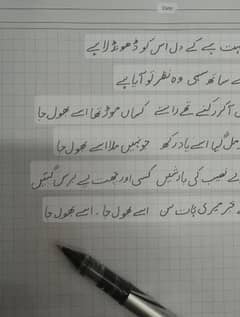 بہت ہے کے دل اس کو ڈھونڈ لایے
ے ساتھ سہی وہ نظر تو آیا ہے
آکر رکنے تھے راستے کہاں موڑ تھا اسے بھول جا
مل گیا اسے یاد رکھ جو نہیں ملا اسے بھول جا
نصیب کی بارشیں کسی اور چھت پے برس گئیں
خبر میری بات سن اسے بھول جا۔ اسے بھول جا